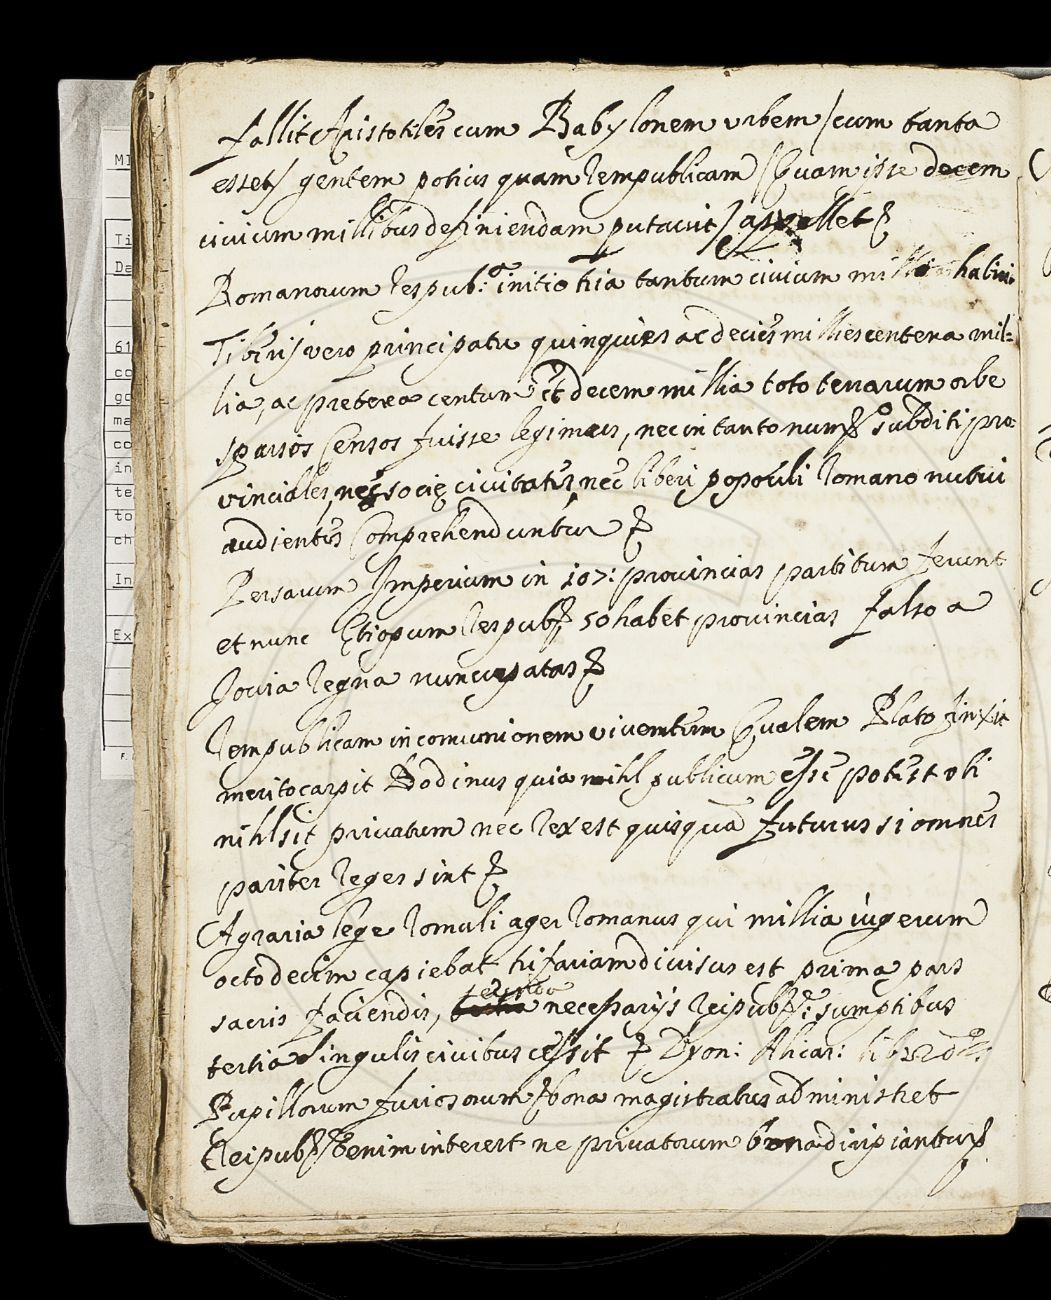 fallit Aristotiles cum Babylonem urbem /cum tanta
esset/ gentem potius quam Rempublicam /Quam isse decem
civium millibus definiendam putavit/ appellet
Romanorum Respub: initio tria tantum civium millia habuit
Tiberij vero principatu quinquies ac decies millies centena mil-
lia, ac preterea centum et decem millia toto terrarum orbe
sparsos Censos fuisse legimus, nec in tanto num° subditi pro-
vinciales, nec socie civitates, nec liberi populi Romano nutui
audientes Comprehenduntur
Persarum Imperium in 107: provincias partitum ferunt
et nunc Etiopum Respub 50 habet provincias falso a
Jovia Regna nuncupatas
Rempublicam in comunionem viventium Qualem Plato finxit
merito carpit Bodinus quia nihl publicum esse potest ubi
nihl sit privatum nec Rex est quisquã futurus si omnes
pariter Reges sint
Agraria lege Romuli ager Romanus qui millia iugerum
octodecim capiebat trifariam divisus est prima pars
sacris faciendis, necessarijs Reipub: sumptibus
tertia singulis civibus cessit Dyon: Alicar: lib
Pupillorum furiosorum bona magistratus administret
Reipub enim interest ne privatorum bona diripiantur